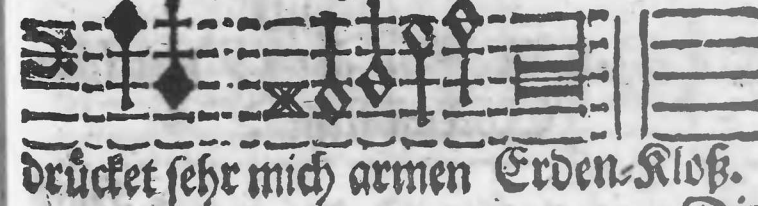 drücket sehr mich armen Erden-Kloß.